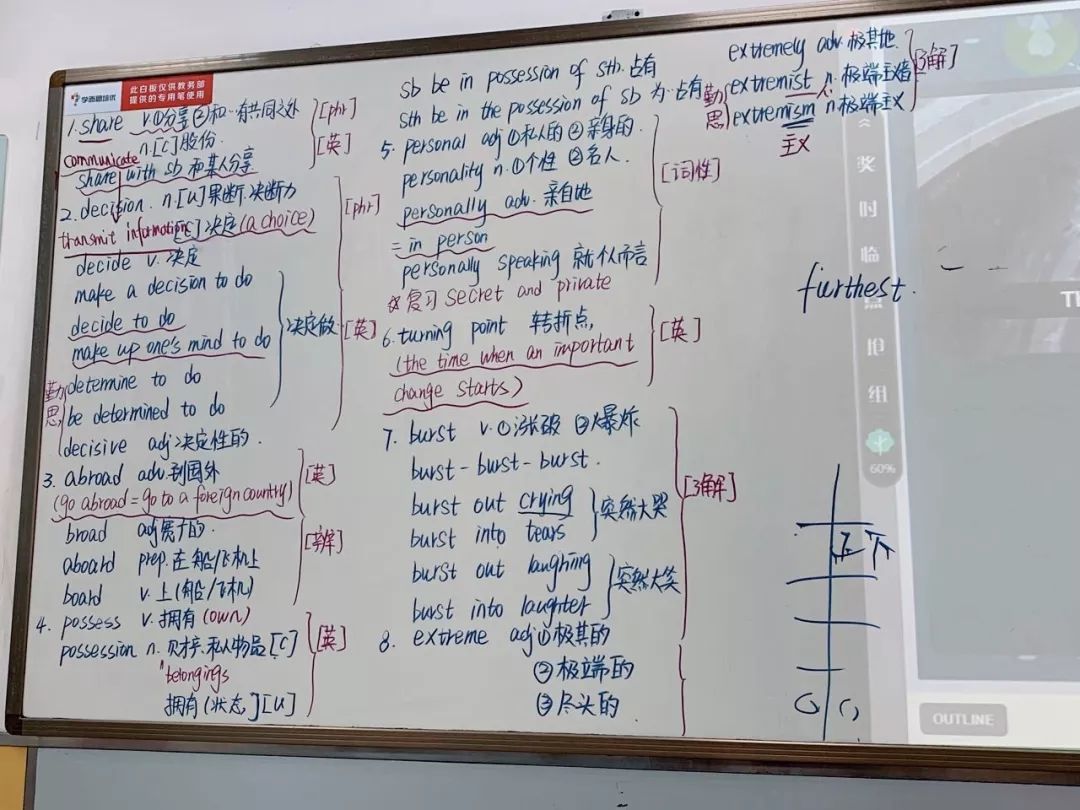 学而思培优
此白板仅供教务部
提供的专用笔使用
1. share v.①分享 ②和…有共同之处 [phr]
n.[C]股份. [英]
communicate
share with sb 和某人分享
2. decision. n.[U]果断.决断力 [phr]
transmit information [C]决定(a choice)
decide v.决定
make a decision to do
decide to do 决定做 [英]
make up one's mind to do
勤思 determine to do
be determined to do
decisive adj决定性的.
3. abroad adv.到国外 [英]
(go abroad = go to a foreign country)
broad adj宽广的. [辨]
aboard prep.在船/飞机上
board v.上(船/飞机)
4. possess v.拥有(own) [英]
possession n.财产.私人物品[C]
belongings
拥有(状态)[U]
sb be in possession of sth.占有
sth be in the possession of sb 为…占有
5. personal adj ①私人的 ②亲身的. [词性]
personality n.①个性 ②名人.
personally adv. 亲自地
= in person
personally speaking 就个人而言
复习 secret and private
6. turning point 转折点, [英]
(the time when an important
change starts)
7. burst v.①涨破 ②爆炸
burst-burst-burst.
burst out crying 突然大哭
burst into tears
burst out laughing 突然大笑
burst into laughter
8. extreme adj①极其的
②极端的
③尽头的
extremely adv.极其地.
勤思 extremist n.极端主义者
extremism n极端主义
主义
furthest.
奖
时
临
点
抢
组
60%
TH
正下
OUTLINE